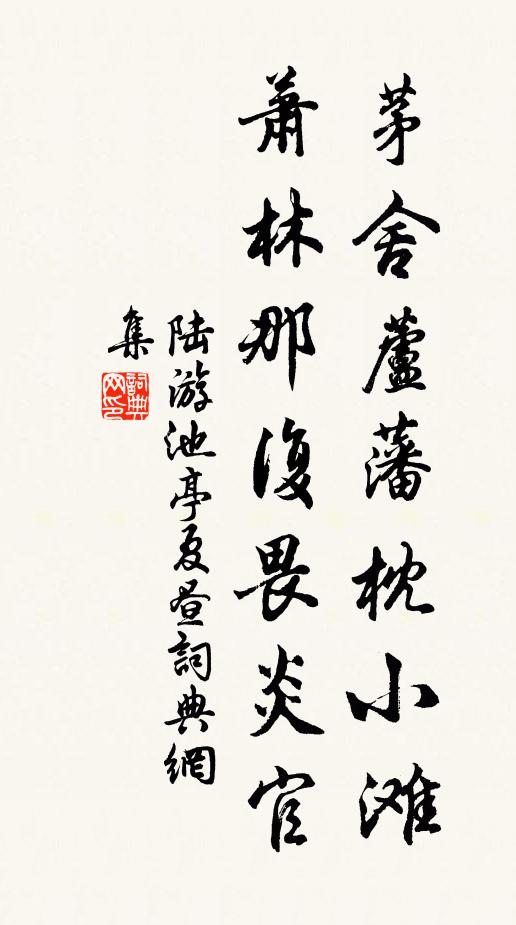 茅舍蘆藩枕小滩
蕭林那復畏炎官
陆游池亭夏昼詞典網
集
詞典网印